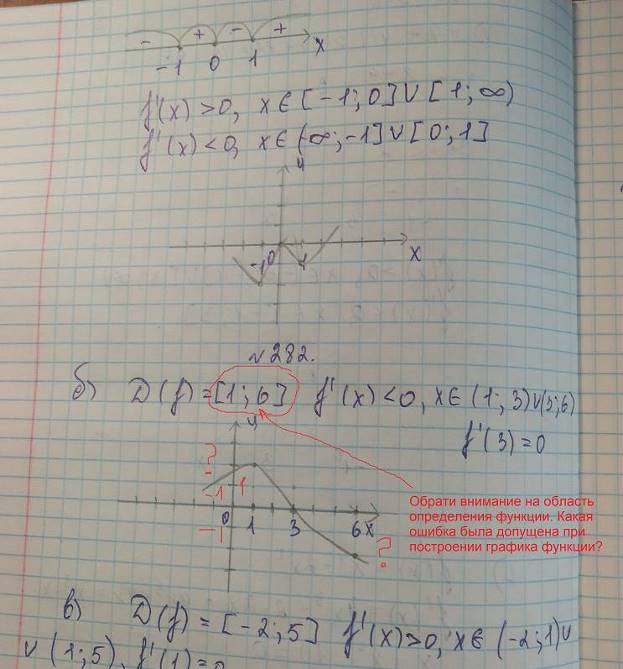 - + - + x
-1 0 1
f'(x) > 0, x ∈ [-1; 0] ∪ [1; ∞)
f'(x) < 0, x ∈ (-∞; -1] ∪ [0; 1]
y
-1 0 1 x
№ 282.
б) D(f) = [1; 6] f'(x) < 0, x ∈ (1; 3) ∪ (3; 6)
f'(3) = 0
y
?
-1 1
0 1 3 6 x
-1
?
Обрати внимание на область
определения функции. Какая
ошибка была допущена при
построении графика функции?
в) D(f) = [-2; 5] f'(x) > 0, x ∈ (-2; 1) ∪
∪ (1; 5), f'(1) = 0